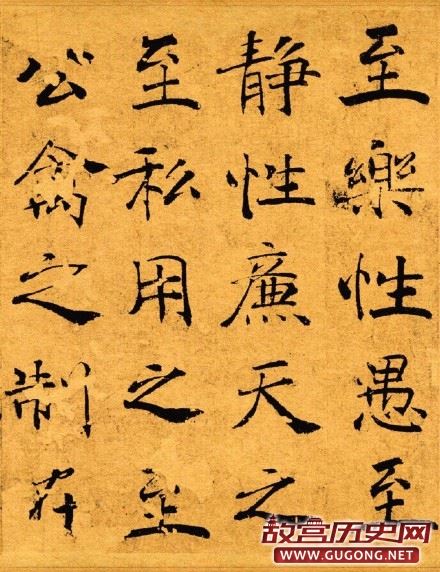 至樂性愚至
静性廉天之
至私用之至
公禽之制在
故宫历史网
WWW.GUGONG.NET